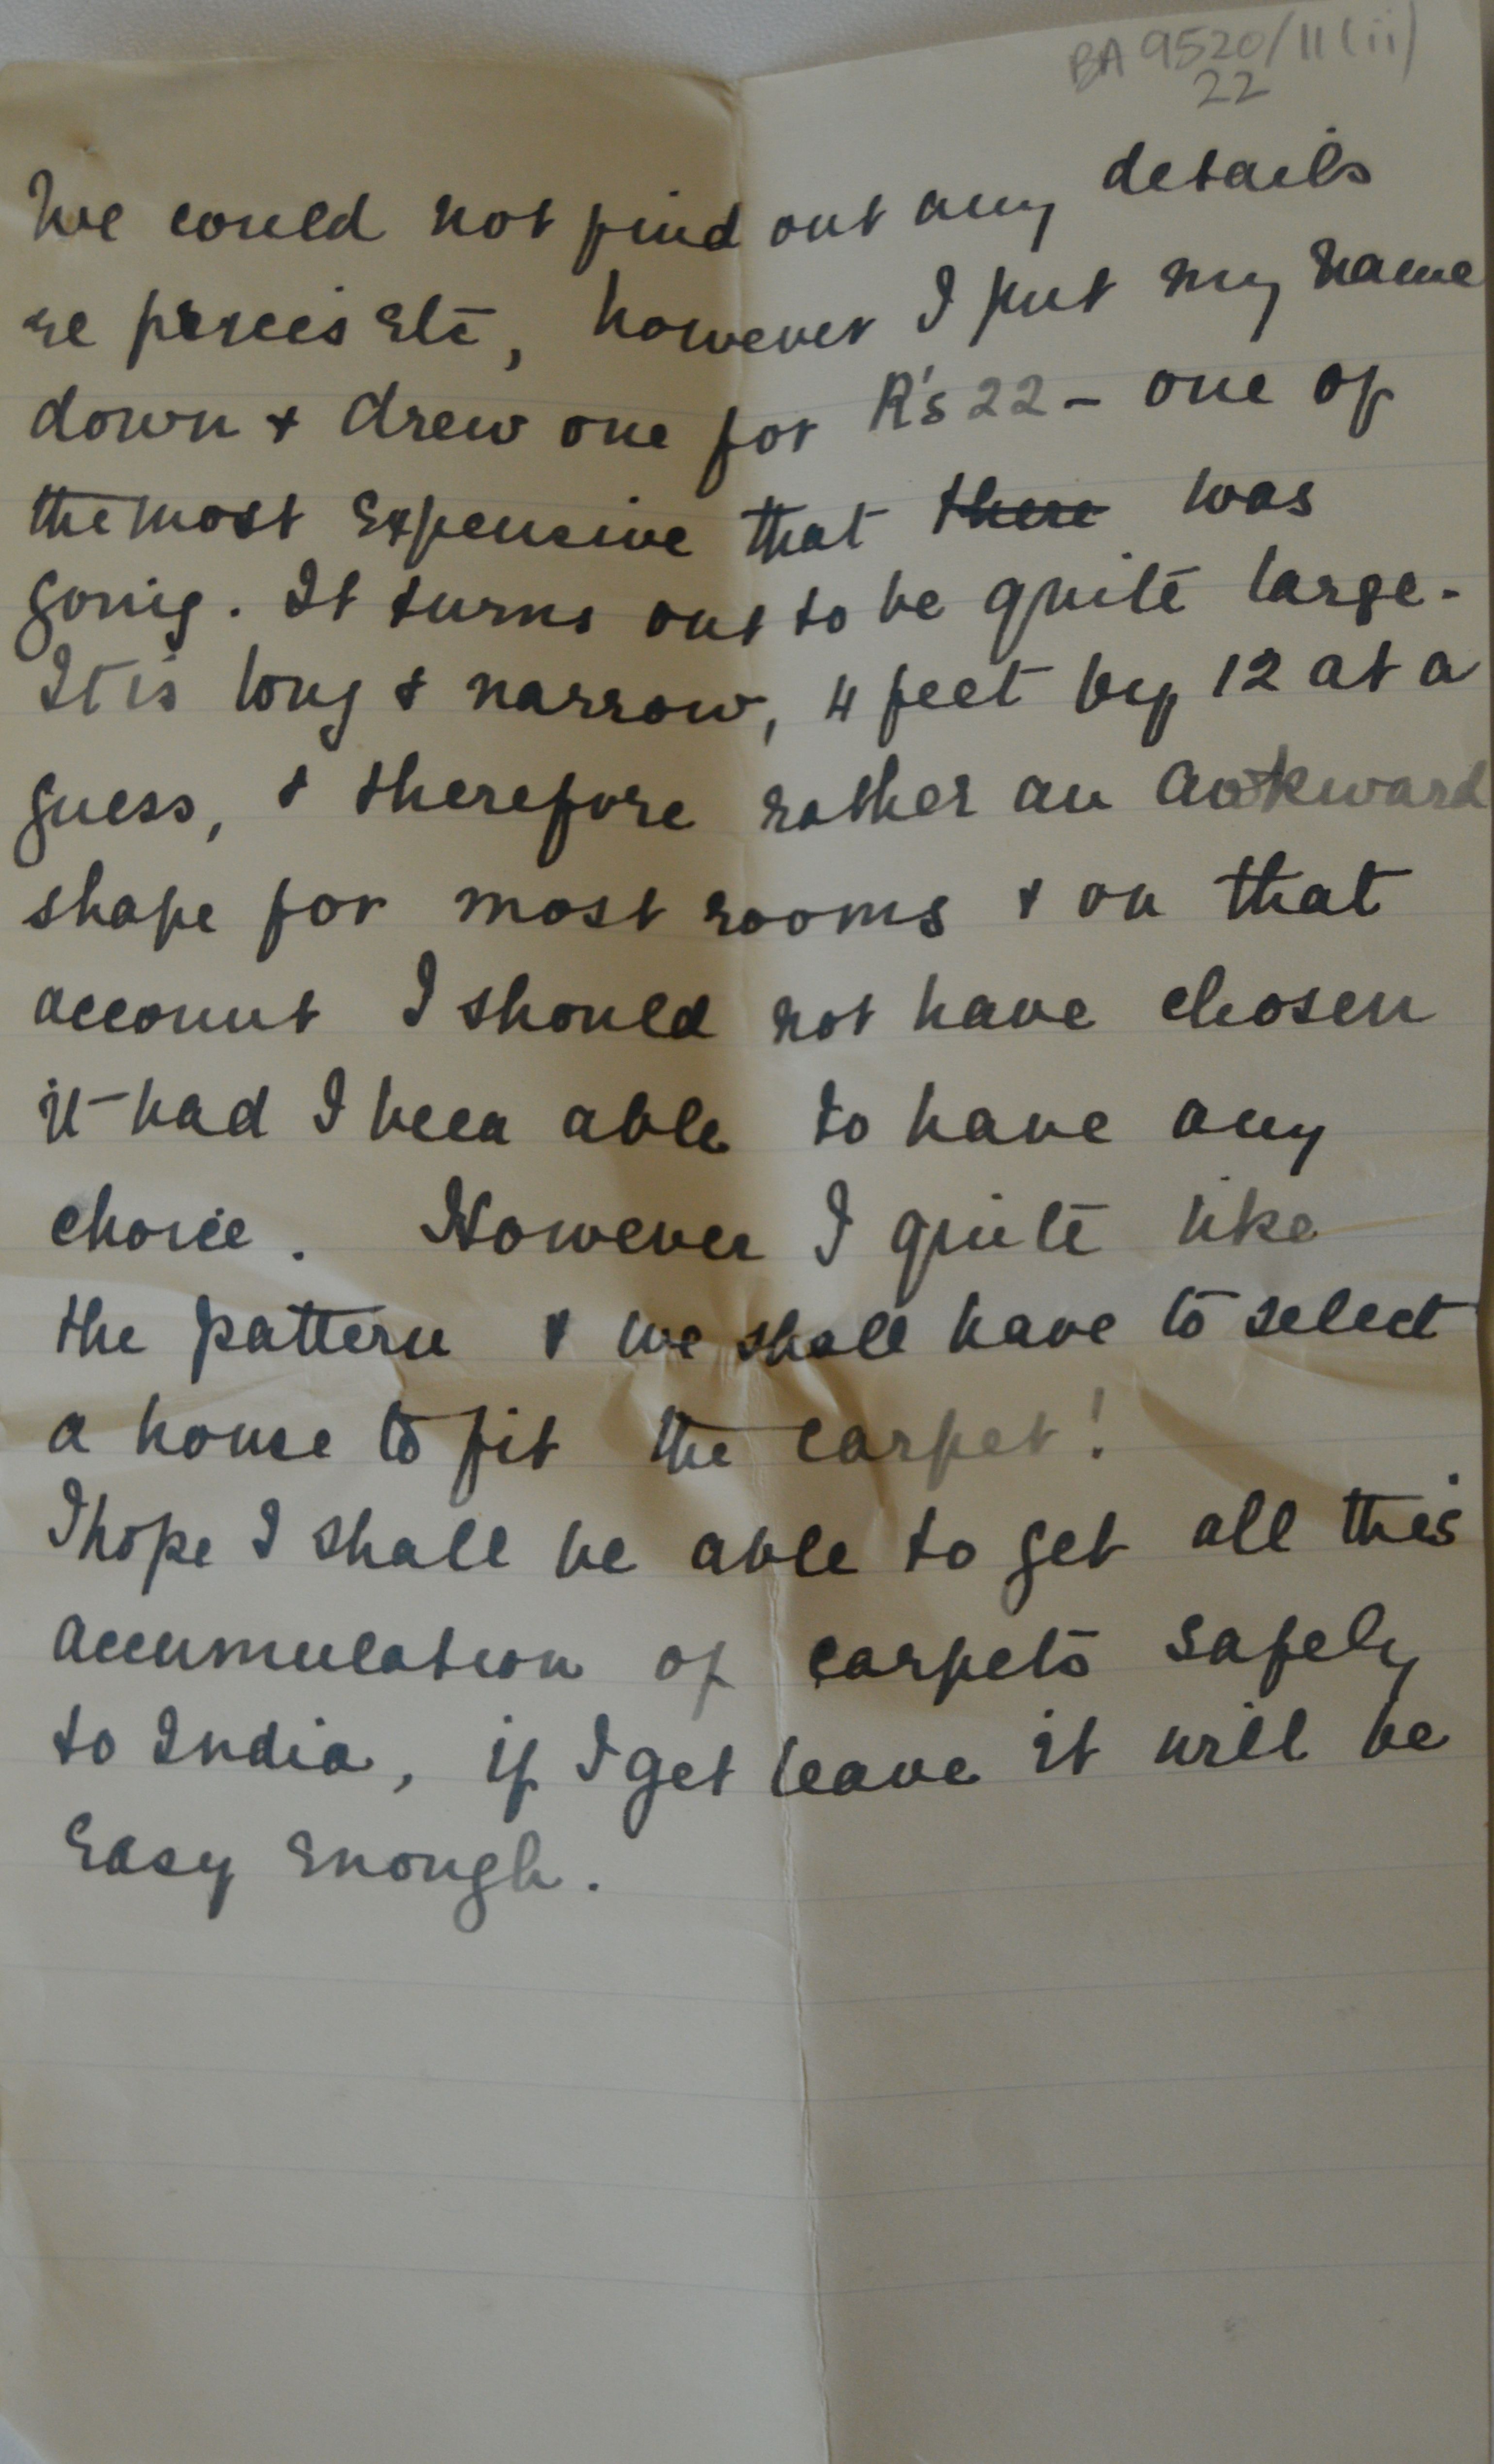 BA 9520/11(ii)
22
We could not find out any details
re prices etc, however I put my name
down + drew one for R's 22 - one of
the most expensive that there was
going. It turns out to be quite large.
It is long & narrow, 4 feet by 12 at a
guess, & therefore rather an awkward
shape for most rooms & on that
account I should not have chosen
it had I been able to have any
choice. However I quite like
the pattern & we shall have to select
a house to fit the carpet!
I hope I shall be able to get all this
accumulation of carpets safely
to India, if I get leave it will be
easy enough.